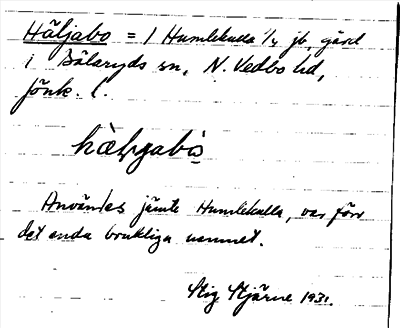 Häljabo = 1 Humlekulla 1/4 jb, gård
i Bälaryds sn, N. Vedbo hd,
Jönk. l.
hälyabo
Användes jämte Humlekulla, var förr
det enda brukliga namnet.
Stig Stjärne 1931.